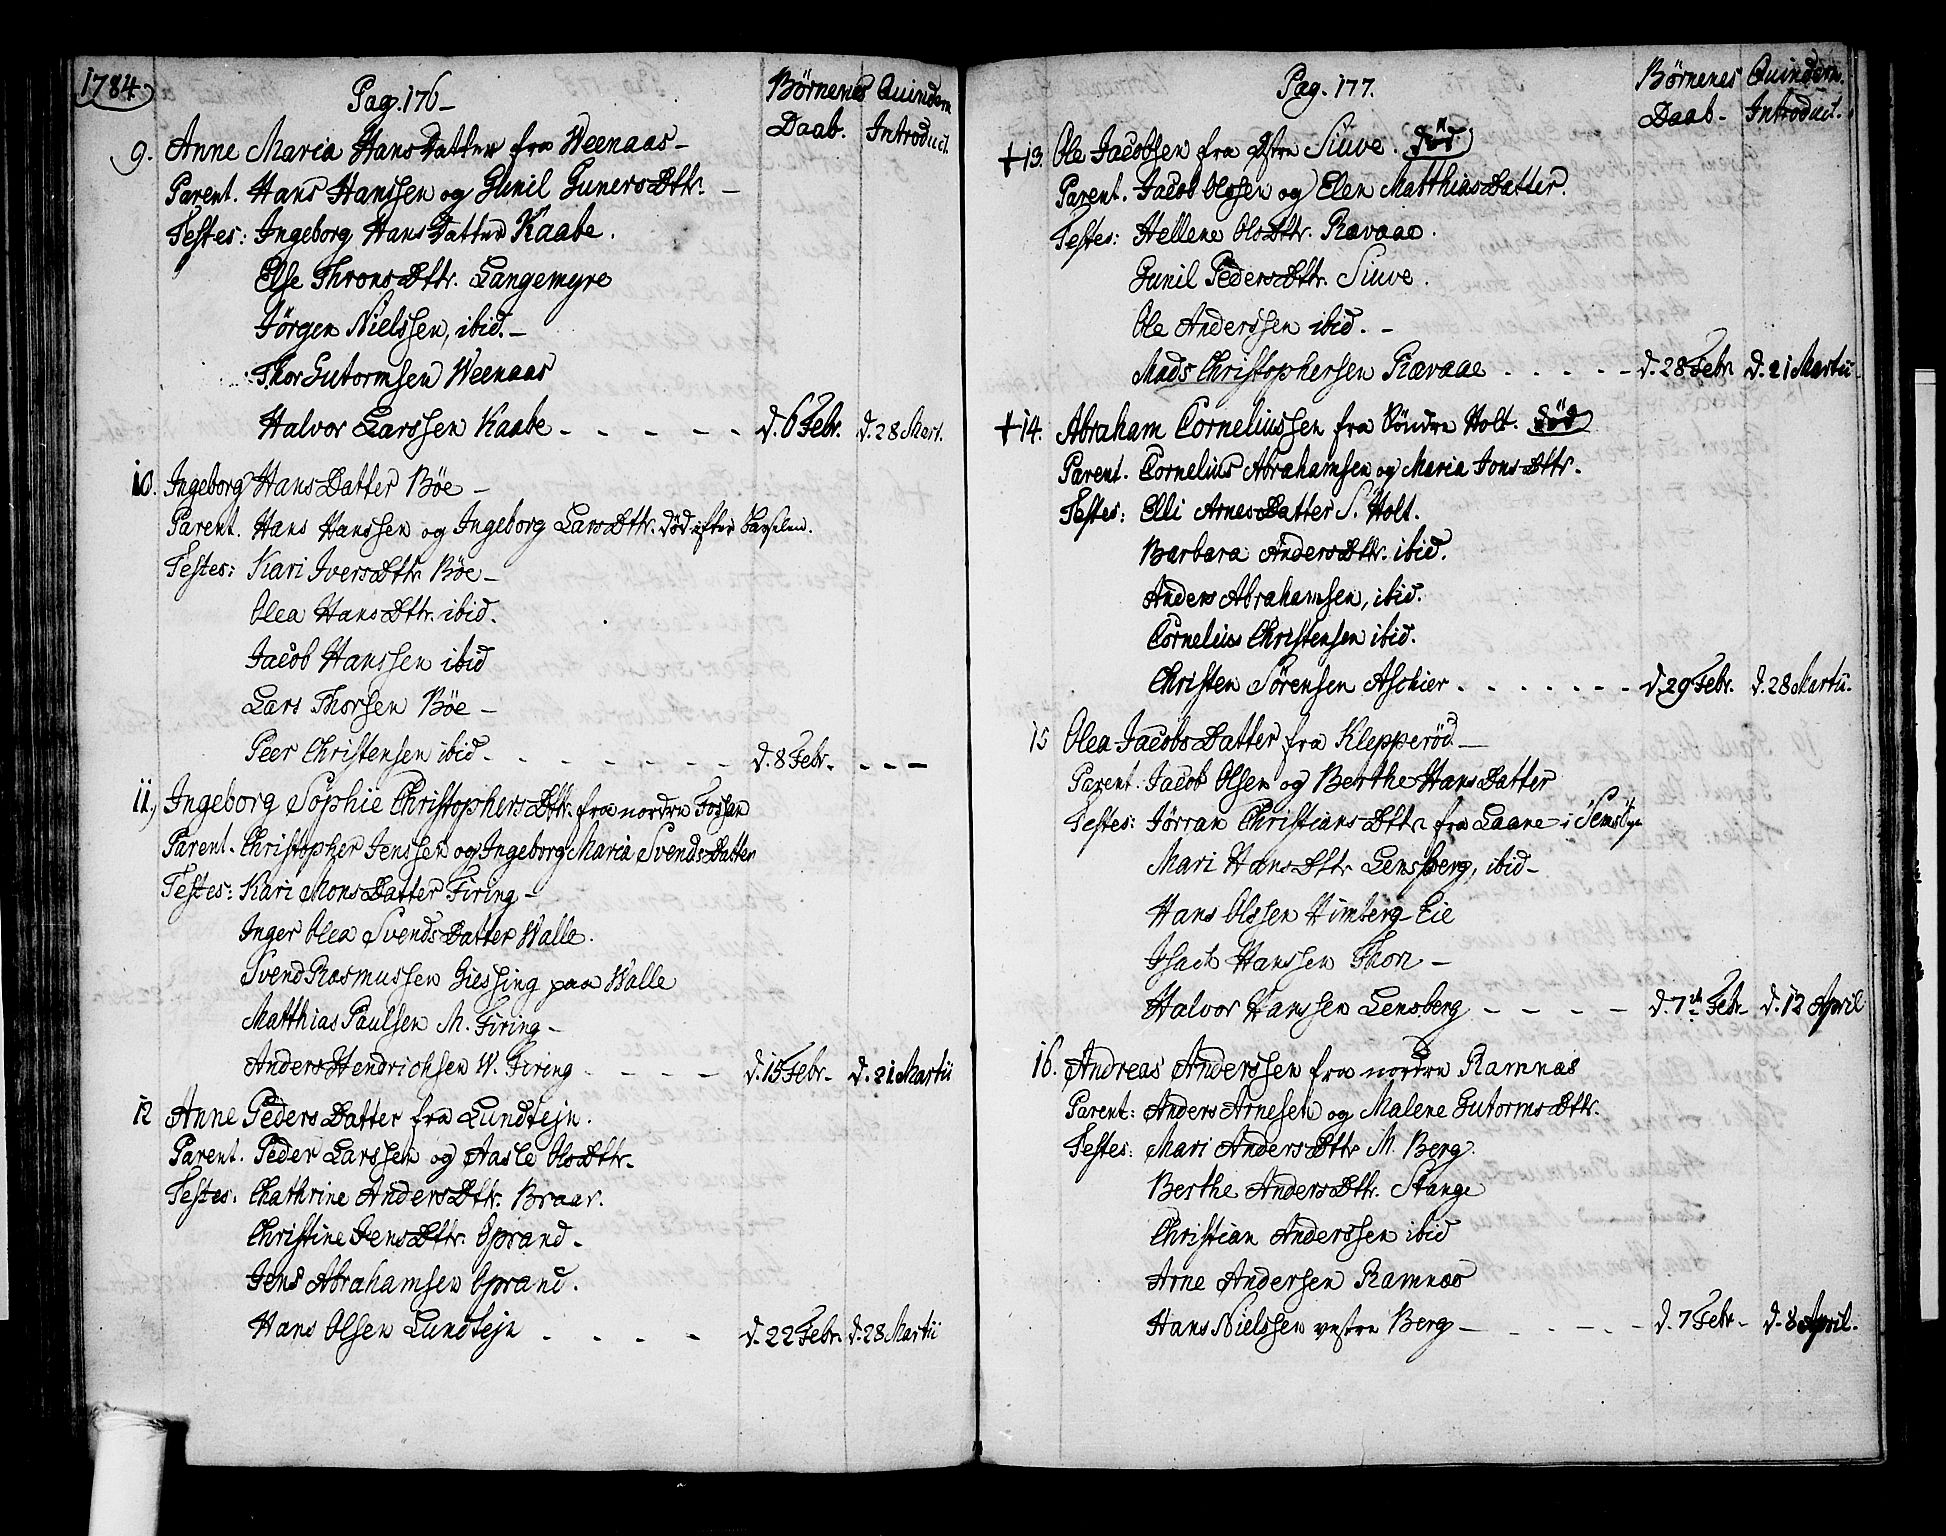 1784
Pag. 176 –
Börnenes Daab.
Quindern. Introduct.
9. Anne Maria HansDatter fra Weenaas –
Parent. Hans Hanssen og Gunil GunersDttr. –
Testes: Ingeborg HansDatter Kaabe.
Else ThronsDttr. Langemyre
Jörgen Nielssen, ibid. –
Thor Gutormsen Weenaas
Halvor Larssen Kaabe - - - - - d. 6 Febr. d. 28 Mart.
10. Ingeborg HansDatter Böe –
Parent. Hans Hanssen og Ingeborg LarsDttr. död efter Barselen.
Testes: Kari IversDttr Böe –
Olea HansDttr. ibid.
Jacob Hanssen ibid
Lars Thorsen Böe –
Peer Christensen ibid. - - - - - - - d. 8 Febr. - - -
11, Ingeborg Sophie ChristophersDttr. fra nordre Fossan
Parent. Christopher Jenssen og Ingeborg Maria SvendsDatter
Testes: Kari MonsDatter Firing –
Inger Olea SvendsDatter Walle.
Svend Rasmussen Giessing paa Walle
Matthias Paulsen M. Firing –
Anders Hendrichsen W. Firing - - - - d. 15 Febr. d. 21 Martii
12 Anne PedersDatter fra Lundtejn.
Parent. Peder Larssen og Aasle OlsDttr.
Testes. Chathrine AndersDttr. Braar.
Christine JensDttr. Oprand.
Jens Abrahamsen Oprand.
Hans Olsen Lundtejn - - - - d. 22 Febr. d. 28 Martii
Pag. 177.
Börnenes Daab –
Quindern. Introduct.
+ 13. Ole Jacobsen fra östre Siuve. död
Parent. Jacob Olssen og Elen MatthiasDatter.
Testes: Hellene OlsDttr. Rævaae.
Gunil PedersDttr. Siuve.
Ole Anderssen ibid. –
Mads Christophersen Rævaae - - - - - d. 28 Febr. d. 21 Martii
+ 14. Abraham Corneliussen fra Söndre Holt. död
Parent. Cornelius Abrahamsen og Maria JonsDttr.
Testes: Elli ArnesDatter S. Holt.
Barbara AndersDttr. ibid.
Anders Abrahamsen, ibid.
Cornelius Christensen ibid.
Christen Sörensen Aschier - - - - - - - d. 29 Febr. d. 28 Martii.
15 Olea JacobsDatter fra Klepperöd –
Parent. Jacob Olsen og Berthe HansDatter
Testes: Jörran ChristiansDttr fra Laane i Semsbye
Mari HansDttr Lensberg, ibid –
Hans Olssen Himberg Eie
Isach Hanssen Thon –
Halvor Hanssen Lensberg - - - - d. 7 Febr. d. 12 April
16. Andreas Anderssen fra nordre Ramnæs
Parent: Anders Arnesen og Malene GutormsDttr.
Testes: Mari AndersDttr M. Berg.
Berthe AndersDttr. Stange
Christian Anderssen ibid
Arne Andersen Ramnæs
Hans Nielssen vestre Berg - - - - - d. 7 Febr. d. 8 April.